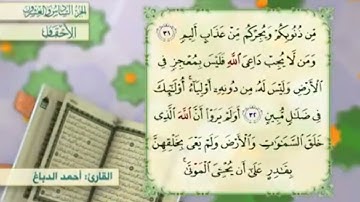 الجزء السادس والعشرون
الأحقاف
مِّن ذُنُوبِكُمْ وَيُجِرْكُم مِّنْ عَذَابٍ أَلِيمٍ ٣١
وَمَن لَّا يُجِبْ دَاعِيَ اللَّهِ فَلَيْسَ بِمُعْجِزٍ فِي
الْأَرْضِ وَلَيْسَ لَهُ مِن دُونِهِ أَوْلِيَاءُ أُوْلَٰئِكَ
فِي ضَلَالٍ مُّبِينٍ ٣٢ أَوَلَمْ يَرَوْا أَنَّ اللَّهَ الَّذِي
خَلَقَ السَّمَٰوَٰتِ وَالْأَرْضَ وَلَمْ يَعْيَ بِخَلْقِهِنَّ
بِقَٰدِرٍ عَلَىٰ أَن يُحْـِۧيَ الْمَوْتَىٰ
القارئ: أحمد الدباغ